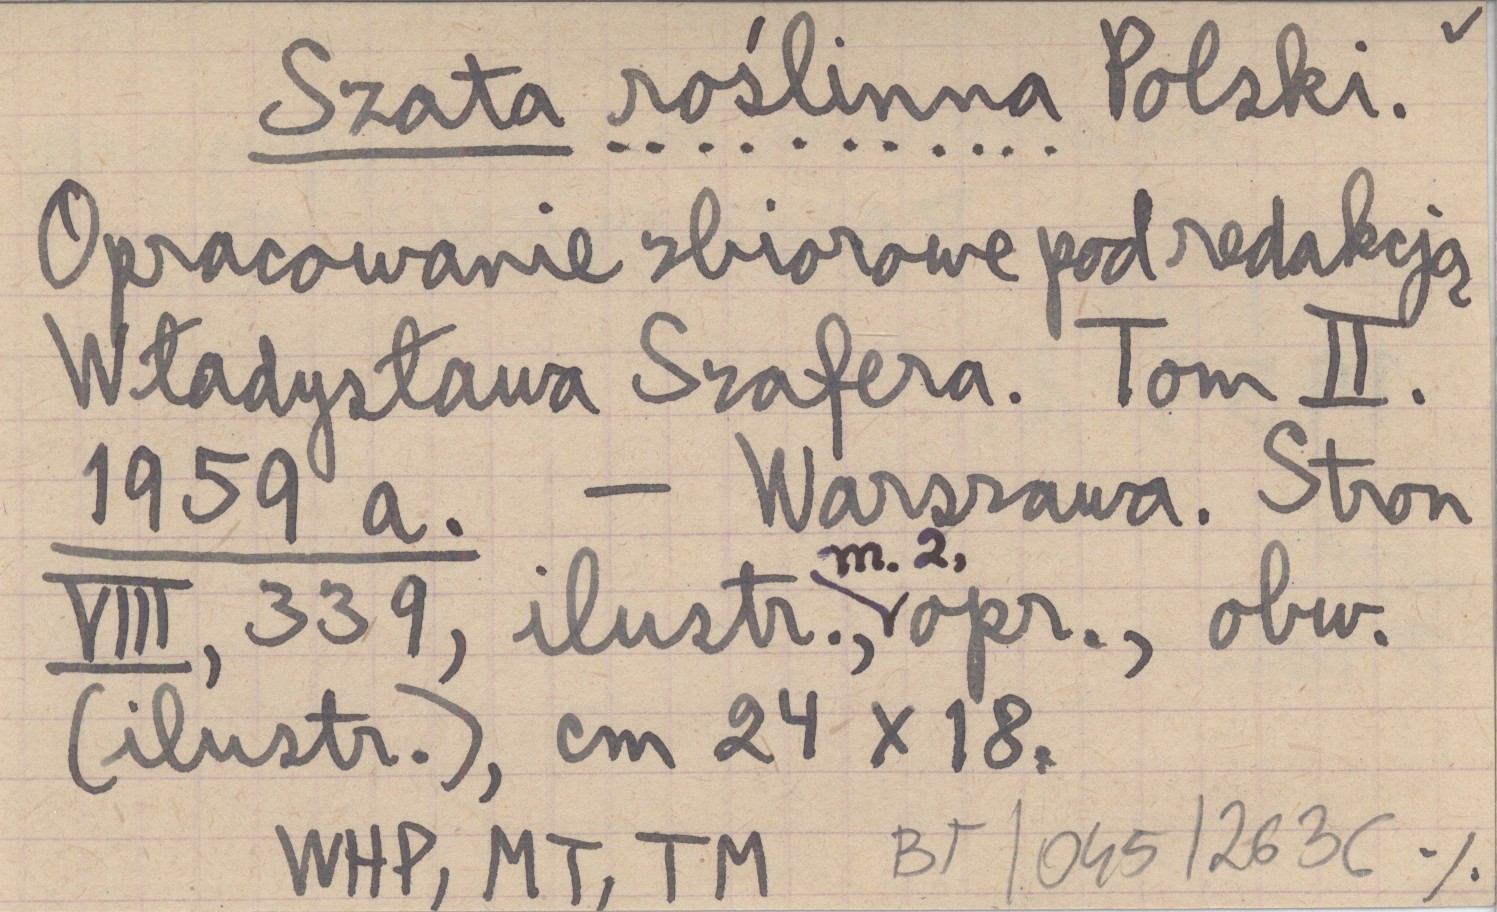 Szata roślinna Polski. ✓
Opracowanie zbiorowe pod redakcją
Władysława Szafera. Tom II.
1959 a. — Warszawa. Stron
m. 2,
VIII, 339, ilustr., opr., obw.
(ilustr.), cm 24 x 18.
WHP, MT, TM BT/045/263